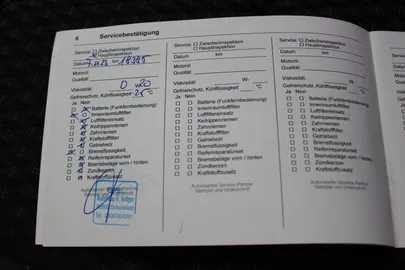 6 Servicebestätigung
Service: Zwischeninspektion
Hauptinspektion
Datum km
Motoröl
Qualität
Viskosität 0 W- 20
Gefrierschutz, Kühlflüssigkeit °C
Ja Nein
Batterie (Funkfernbedienung)
Innenraumluftfilter
Luftfiltereinsatz
Keilrippenriemen
Zahnriemen
Kraftstofffilter
Getriebeöl
Bremsflüssigkeit
Reifenreparaturset
Bremsbeläge vorn / hinten
Zündkerzen
Kraftstoffzusatz
Service: Zwischeninspektion
Hauptinspektion
Datum km
Motoröl
Qualität
Viskosität W-
Gefrierschutz, Kühlflüssigkeit °C
Ja Nein
Batterie (Funkfernbedienung)
Innenraumluftfilter
Luftfiltereinsatz
Keilrippenriemen
Zahnriemen
Kraftstofffilter
Getriebeöl
Bremsflüssigkeit
Reifenreparaturset
Bremsbeläge vorn / hinten
Zündkerzen
Kraftstoffzusatz
Autorisierter Service Partner
Stempel und Unterschrift
Service: Zwischeninspektion
Hauptinspektion
Datum km
Motoröl
Qualität
Viskosität W-
Gefrierschutz, Kühlflüssigkeit °C
Ja Nein
Batterie (Funkfernbedienung)
Innenraumluftfilter
Luftfiltereinsatz
Keilrippenriemen
Zahnriemen
Kraftstofffilter
Getriebeöl
Bremsflüssigkeit
Reifenreparaturset
Bremsbeläge vorn / hinten
Zündkerzen
Kraftstoffzusatz
Autorisierter Service Partner
Stempel und Unterschrift